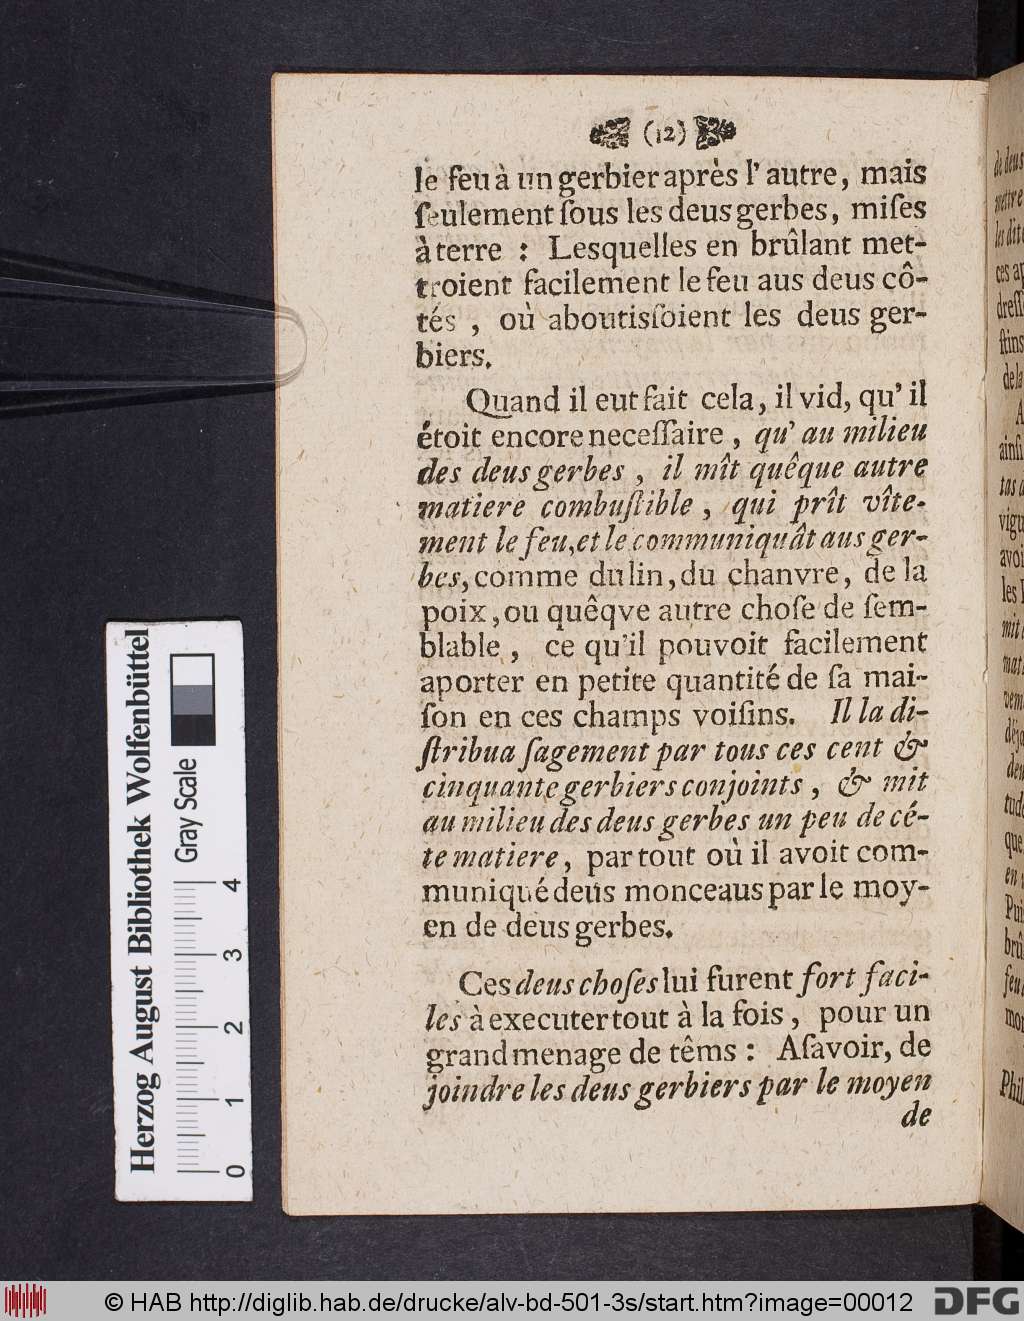 (12)
le feu à un gerbier après l' autre, mais
ſeulement ſous les deus gerbes, miſes
à terre : Lesquelles en brûlant met-
troient facilement le feu aus deus cô-
tés , où aboutisſoient les deus ger-
biers.
Quand il eut fait cela, il vid, qu' il
étoit encore neceſſaire , qu' au milieu
des deus gerbes , il mît quêque autre
matiere combuſtible , qui prît vîte-
ment le feu, et le communiquât aus ger-
bes, comme du lin, du chanvre, de la
poix, ou quêqve autre choſe de ſem-
blable , ce qu'il pouvoit facilement
aporter en petite quantité de ſa mai-
ſon en ces champs voiſins. Il la di-
ſtribua ſagement par tous ces cent &
cinquante gerbiers conjoints , & mit
au milieu des deus gerbes un peu de cé-
te matiere, par tout où il avoit com-
muniqué deus monceaus par le moy-
en de deus gerbes.
Ces deus choſes lui furent fort faci-
les à executer tout à la fois , pour un
grand menage de têms : Aſavoir, de
joindre les deus gerbiers par le moyen
de
Herzog August Bibliothek Wolfenbüttel
Gray Scale
0 1 2 3 4
© HAB http://diglib.hab.de/drucke/alv-bd-501-3s/start.htm?image=00012
DFG